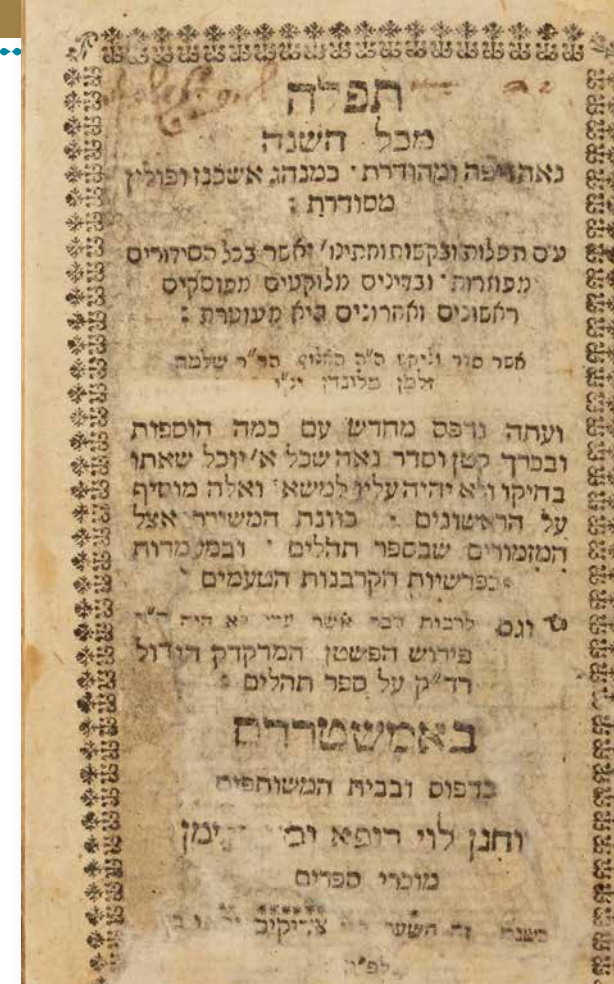 תפלה
מכל השנה
נאה ויפה ומהודרת · כמנהג אשכנז ופולין
מסודרת :
עם תפלות ובקשות ותחינו' אשר בכל הסידורים
מפוזרות · ובדינים מלוקטים מפוסקים
ראשונים ואחרונים היא מעוטרת :
אשר סדר האלוף הר"ר שלמה
זלמן מלונדן יצ"ו
ועתה נדפס מחדש עם כמה הוספות
ובכרך קטן וסדר נאה שכל א' יוכל שאתו
בחיקו ולא יהיה עליו למשא ואלה מוסיף
על הראשונים · כוונת המשורר אצל
המזמורים שבספר תהלים · ובמעמדות
בפרשיות הקרבנות הטעמים
וגם לרבות דבר אשר עדי לא היה
פירוש הפשטן המדקדק הגדול
רד"ק על ספר תהלים :
באמשטרדם
בדפוס ובבית המשותפים
וחנן לוי רופא
מוכרי ספרים
בשנת זה השער צדיקים
לפ"ק